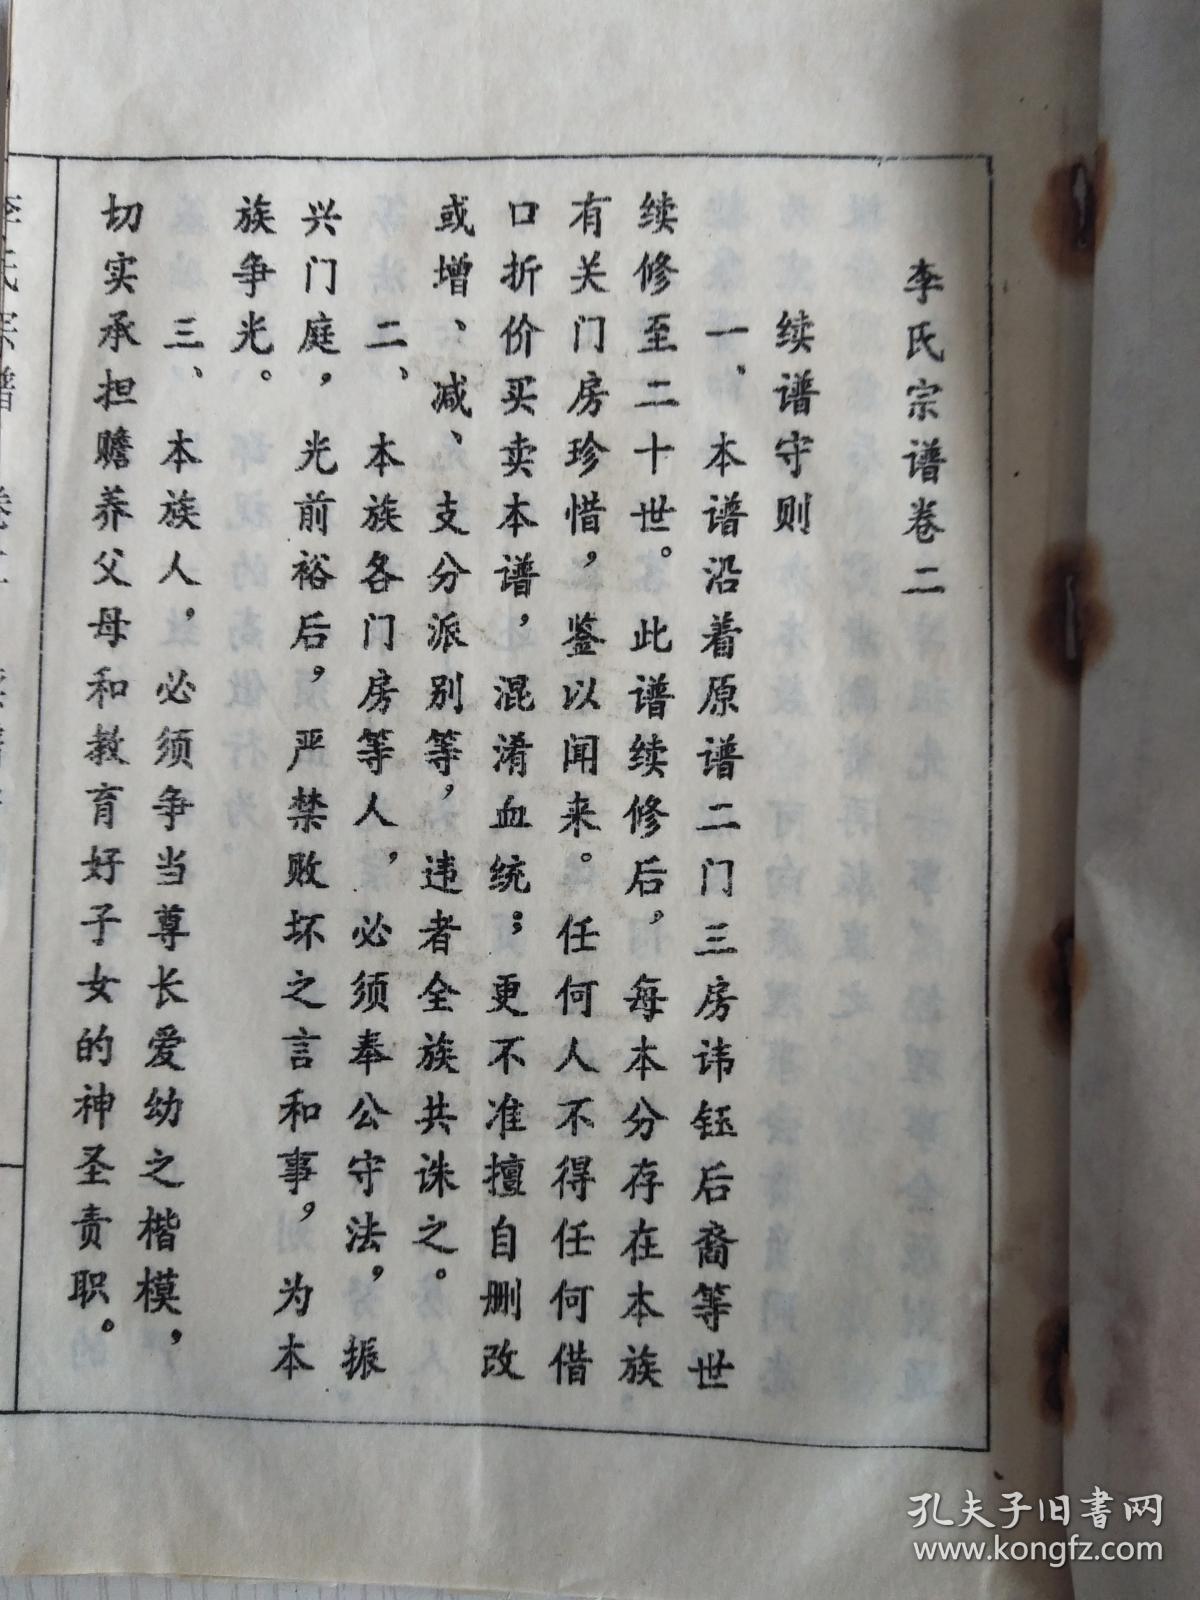 李氏宗谱卷二
续谱守则
一、本谱沿着原谱二门三房讳钰后裔等世
续修至二十世。此谱续修后，每本分存在本族
有关门房珍惜，鉴以闻来。任何人不得任何借
口折价买卖本谱，混淆血统；更不准擅自删改
或增、减、支分派别等，违者全族共诛之。
二、本族各门房等人，必须奉公守法，振
兴门庭，光前裕后，严禁败坏之言和事，为本
族争光。
三、本族人，必须争当尊长爱幼之楷模，
切实承担赡养父母和教育好子女的神圣责职。
孔夫子旧书网
www.kongfz.com